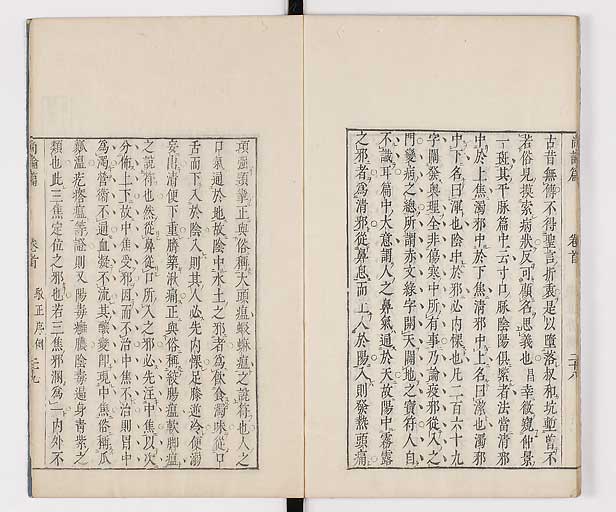 尚論篇 卷首 二十八
古昔無傳不得聖言折衷是以墮落叔和坑塹曾不
若俗見摸索病狀反可顧名思義也昌幸微窺仲景
一斑其平脉篇中云寸口脉陰陽俱緊者法當清邪
中於上焦濁邪中於下焦清邪中上名曰潔也濁邪
中下名曰渾也陰中於邪必内慄也凡二百六十九
字闡發奥理全非傷寒中所有事乃論疫邪從入之
門變病之總所謂赤文綠字開天闢地之寶符人自
不識耳篇中大意謂人之鼻氣通於天故陽中霧露
之邪者爲清邪從鼻息而上入於陽入則發熱頭痛
項強頸攣正與俗稱大頭瘟蝦蟆瘟之說符也人之
口氣通於地故陰中水土之邪者爲飲食濁味從口
舌而下入於陰入則其人必先内慄足膝逆冷便溺
妄出清便下重臍築湫痛正與俗稱絞腸瘟軟脚瘟
之說符也然從鼻從口所入之邪必先注中焦以次
分佈上下故中焦受邪因而不治中焦不治則胃中
爲濁營衛不通血凝不流其釀變即現中焦俗稱瓜
瓤瘟疙瘩瘟等證則又陽毒癰膿陰毒遍身青紫之
類也此三焦定位之邪也若三焦邪溷爲一内外不
尚論篇 卷首 駁正序例 二十九